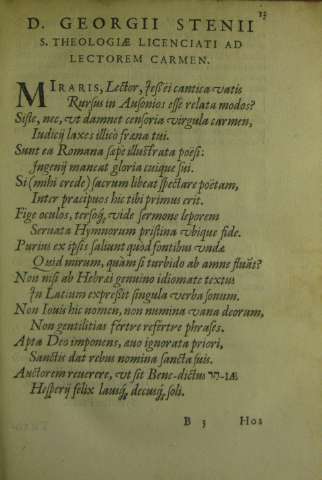 13
D. GEORGII STENII
S. THEOLOGIÆ LICENCIATI AD
LECTOREM CARMEN.
MIRARIS, Lector, Jessei cantica vatis
Rursus in Ausonios esse relata modos?
Siste, nec, vt damnet censoria virgula carmen,
Iudicij laxes illico frana tui.
Sunt ea Romana sæpe illustrata poësi:
Jngenij maneat gloria cuique sui.
Si (mihi crede) sacrum libeat spectare poëtam,
Inter præcipuos hic tibi primus erit.
Fige oculos, tersoq́, vide sermone leporem
Seruata Hymnorum pristina vbique fide.
Purius ex ipsis saliunt quòd fontibus vndæ
Quid mirum, quàm si turbido ab amne fluāt?
Non nisi ab Hebræi genuino idiomate textus
Jn Latium expressit singula verba sonum.
Non Iouis hic nomen, non numina vana deorum,
Non gentilitias fértve refértve phrases.
Apta Deo imponens, auo ignorata priori,
Sanctus dat rebus nomina sancta suis.
Auctorem reuerere, vt sit Bene-dictus יהו-IÆ
Hesperij felix lausq́, decusq́, soli.
B 3 Hos